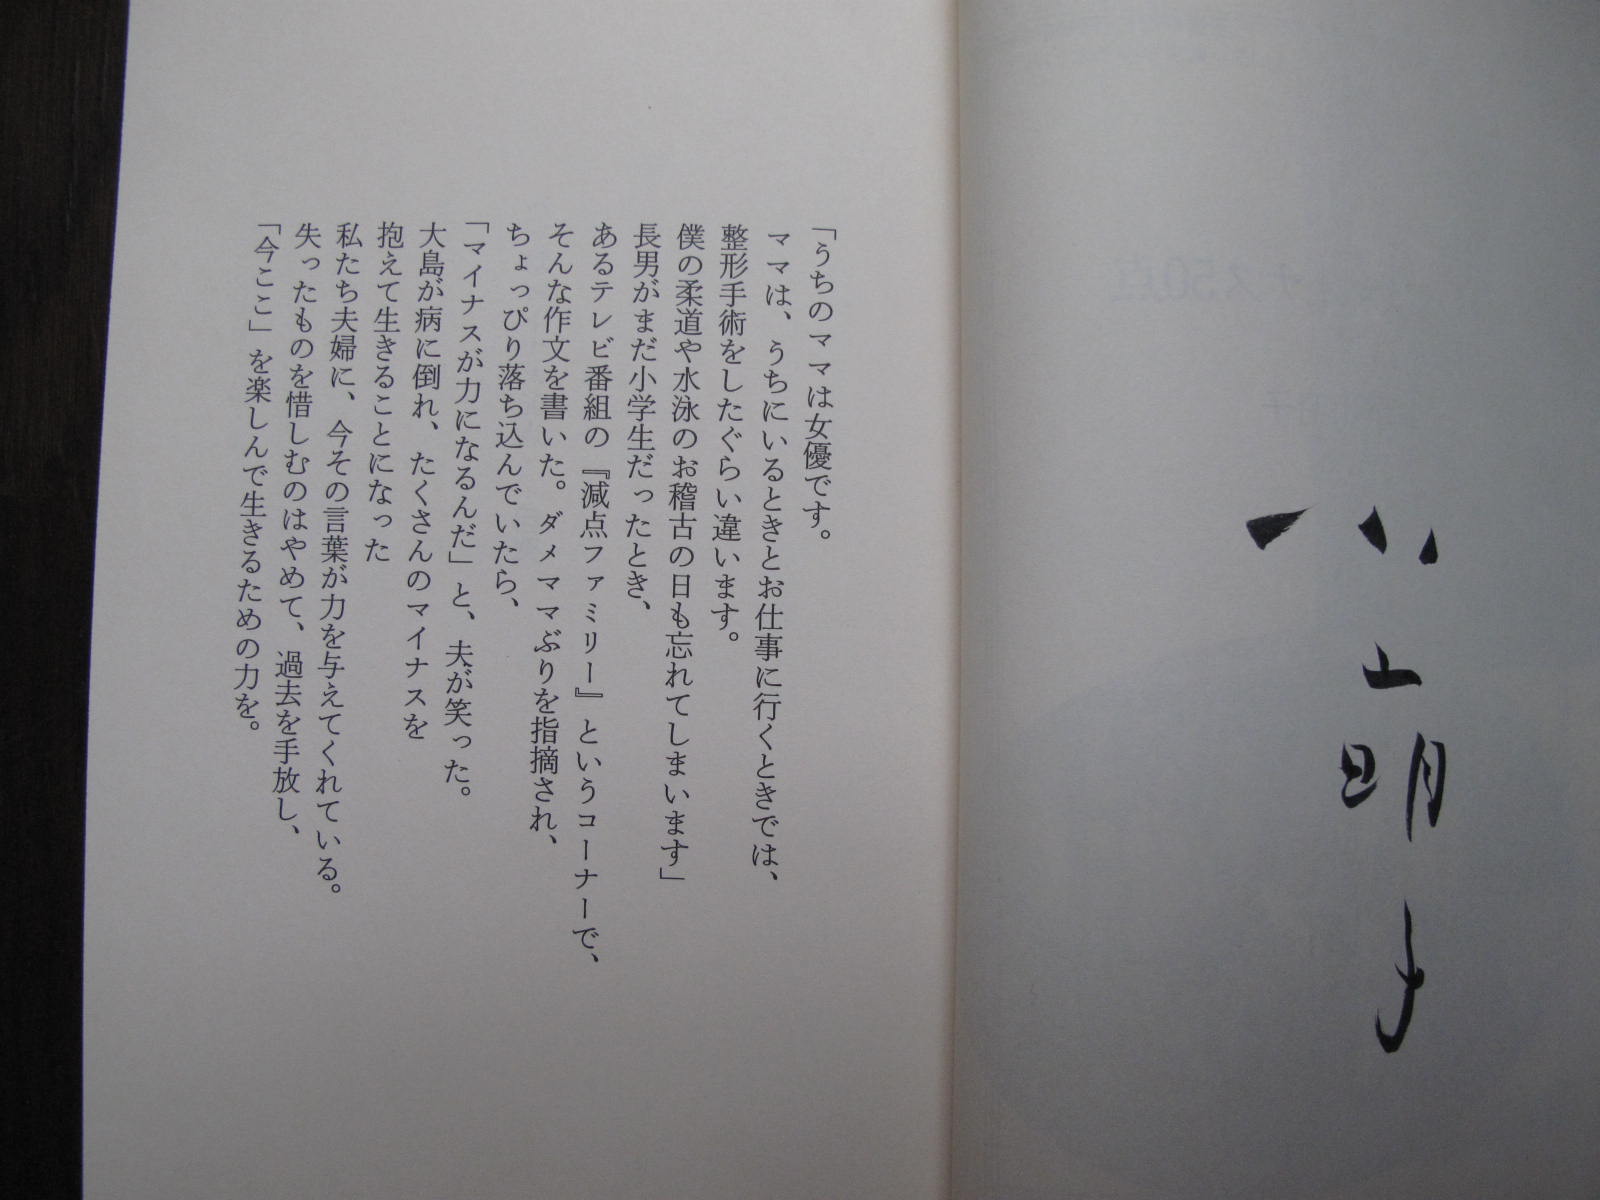 小山明子
「うちのママは女優です。
ママは、うちにいるときとお仕事に行くときでは、
整形手術をしたぐらい違います。
僕の柔道や水泳のお稽古の日も忘れてしまいます」
長男がまだ小学生だったとき、
あるテレビ番組の『減点ファミリー』というコーナーで、
そんな作文を書いた。ダメママぶりを指摘され、
ちょっぴり落ち込んでいたら、
「マイナスが力になるんだ」と、夫が笑った。
大島が病に倒れ、たくさんのマイナスを
抱えて生きることになった
私たち夫婦に、今その言葉が力を与えてくれている。
失ったものを惜しむのはやめて、過去を手放し、
「今ここ」を楽しんで生きるための力を。